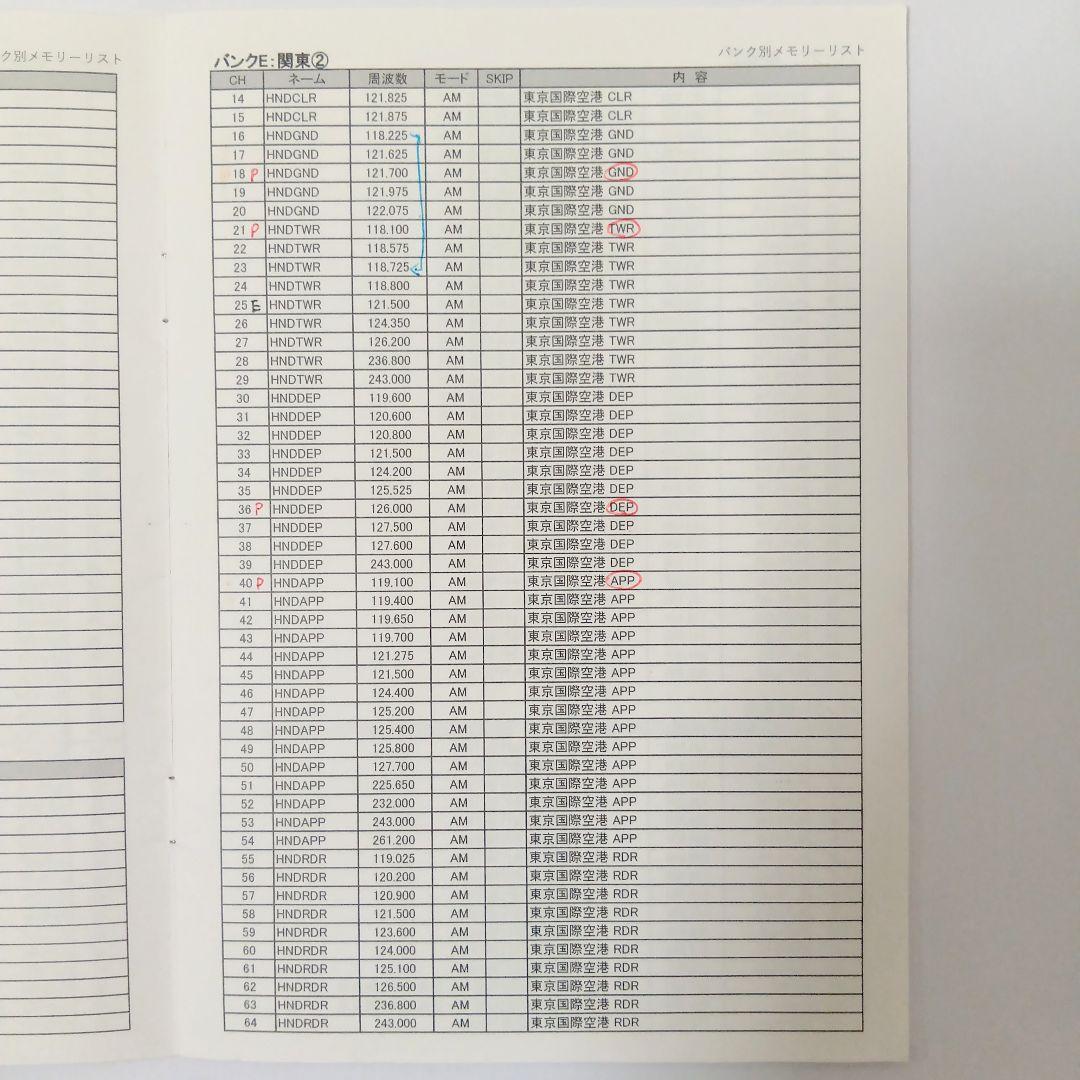 ク別メモリーリスト
バンク別メモリーリスト
バンクE:関東②
CH ネーム 周波数 モード SKIP 内 容
14 HNDCLR 121.825 AM 東京国際空港 CLR
15 HNDCLR 121.875 AM 東京国際空港 CLR
16 HNDGND 118.225 AM 東京国際空港 GND
17 HNDGND 121.625 AM 東京国際空港 GND
18 P HNDGND 121.700 AM 東京国際空港 GND
19 HNDGND 121.975 AM 東京国際空港 GND
20 HNDGND 122.075 AM 東京国際空港 GND
21 P HNDTWR 118.100 AM 東京国際空港 TWR
22 HNDTWR 118.575 AM 東京国際空港 TWR
23 HNDTWR 118.725 AM 東京国際空港 TWR
24 HNDTWR 118.800 AM 東京国際空港 TWR
25 E HNDTWR 121.500 AM 東京国際空港 TWR
26 HNDTWR 124.350 AM 東京国際空港 TWR
27 HNDTWR 126.200 AM 東京国際空港 TWR
28 HNDTWR 236.800 AM 東京国際空港 TWR
29 HNDTWR 243.000 AM 東京国際空港 TWR
30 HNDDEP 119.600 AM 東京国際空港 DEP
31 HNDDEP 120.600 AM 東京国際空港 DEP
32 HNDDEP 120.800 AM 東京国際空港 DEP
33 HNDDEP 121.500 AM 東京国際空港 DEP
34 HNDDEP 124.200 AM 東京国際空港 DEP
35 HNDDEP 125.525 AM 東京国際空港 DEP
36 P HNDDEP 126.000 AM 東京国際空港 DEP
37 HNDDEP 127.500 AM 東京国際空港 DEP
38 HNDDEP 127.600 AM 東京国際空港 DEP
39 HNDDEP 243.000 AM 東京国際空港 DEP
40 P HNDAPP 119.100 AM 東京国際空港 APP
41 HNDAPP 119.400 AM 東京国際空港 APP
42 HNDAPP 119.650 AM 東京国際空港 APP
43 HNDAPP 119.700 AM 東京国際空港 APP
44 HNDAPP 121.275 AM 東京国際空港 APP
45 HNDAPP 121.500 AM 東京国際空港 APP
46 HNDAPP 124.400 AM 東京国際空港 APP
47 HNDAPP 125.200 AM 東京国際空港 APP
48 HNDAPP 125.400 AM 東京国際空港 APP
49 HNDAPP 125.800 AM 東京国際空港 APP
50 HNDAPP 127.700 AM 東京国際空港 APP
51 HNDAPP 225.650 AM 東京国際空港 APP
52 HNDAPP 232.000 AM 東京国際空港 APP
53 HNDAPP 243.000 AM 東京国際空港 APP
54 HNDAPP 261.200 AM 東京国際空港 APP
55 HNDRDR 119.025 AM 東京国際空港 RDR
56 HNDRDR 120.200 AM 東京国際空港 RDR
57 HNDRDR 120.900 AM 東京国際空港 RDR
58 HNDRDR 121.500 AM 東京国際空港 RDR
59 HNDRDR 123.600 AM 東京国際空港 RDR
60 HNDRDR 124.000 AM 東京国際空港 RDR
61 HNDRDR 125.100 AM 東京国際空港 RDR
62 HNDRDR 126.500 AM 東京国際空港 RDR
63 HNDRDR 236.800 AM 東京国際空港 RDR
64 HNDRDR 243.000 AM 東京国際空港 RDR